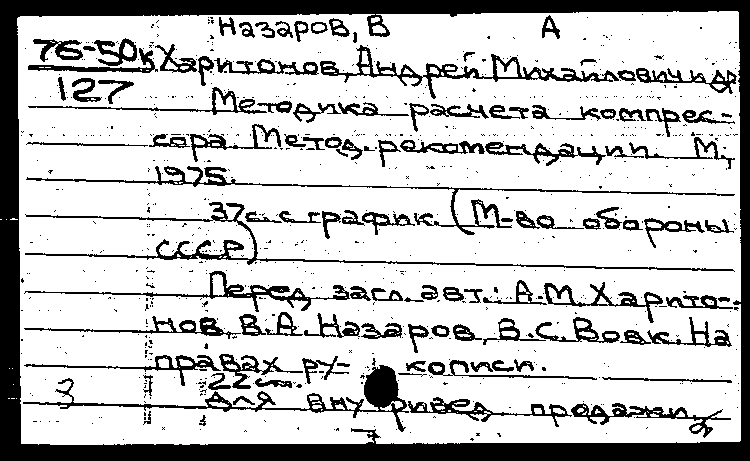 Назаров, В А
76-50к Харитонов, Андрей Михайлович и др
127
Методика расчета компрес-
сора. Метод. рекомендации. М.,
1975.
37с. с график. (М-во обороны
СССР)
Перед загл. авт.: А.М. Харито-
нов, В.А. Назаров, В.С. Вовк. На
правах ру- кописи.
22 см.
3 Для внутривед продажи.